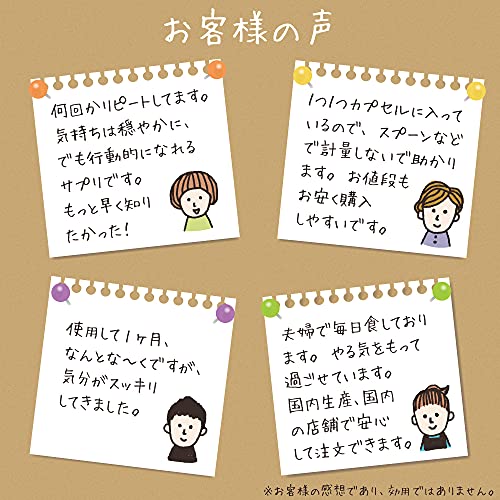 お客様の声
何回かリピートしてます。
気持ちは穏やかに、
でも行動的になれる
サプリです。
もっと早く知り
たかった!
1つ1つカプセルに入って
いるので、スプーンなど
で計量しないで助かり
ます。お値段も
お安く購入
しやすいです。
使用して1ヶ月、
なんとな〜くですが、
気分がスッキリ
してきました。
夫婦で毎日食しており
ます。やる気をもって
過ごせています。
国内生産、国内
の店舗で安心
して注文できます。
※お客様の感想であり、効用ではありません。